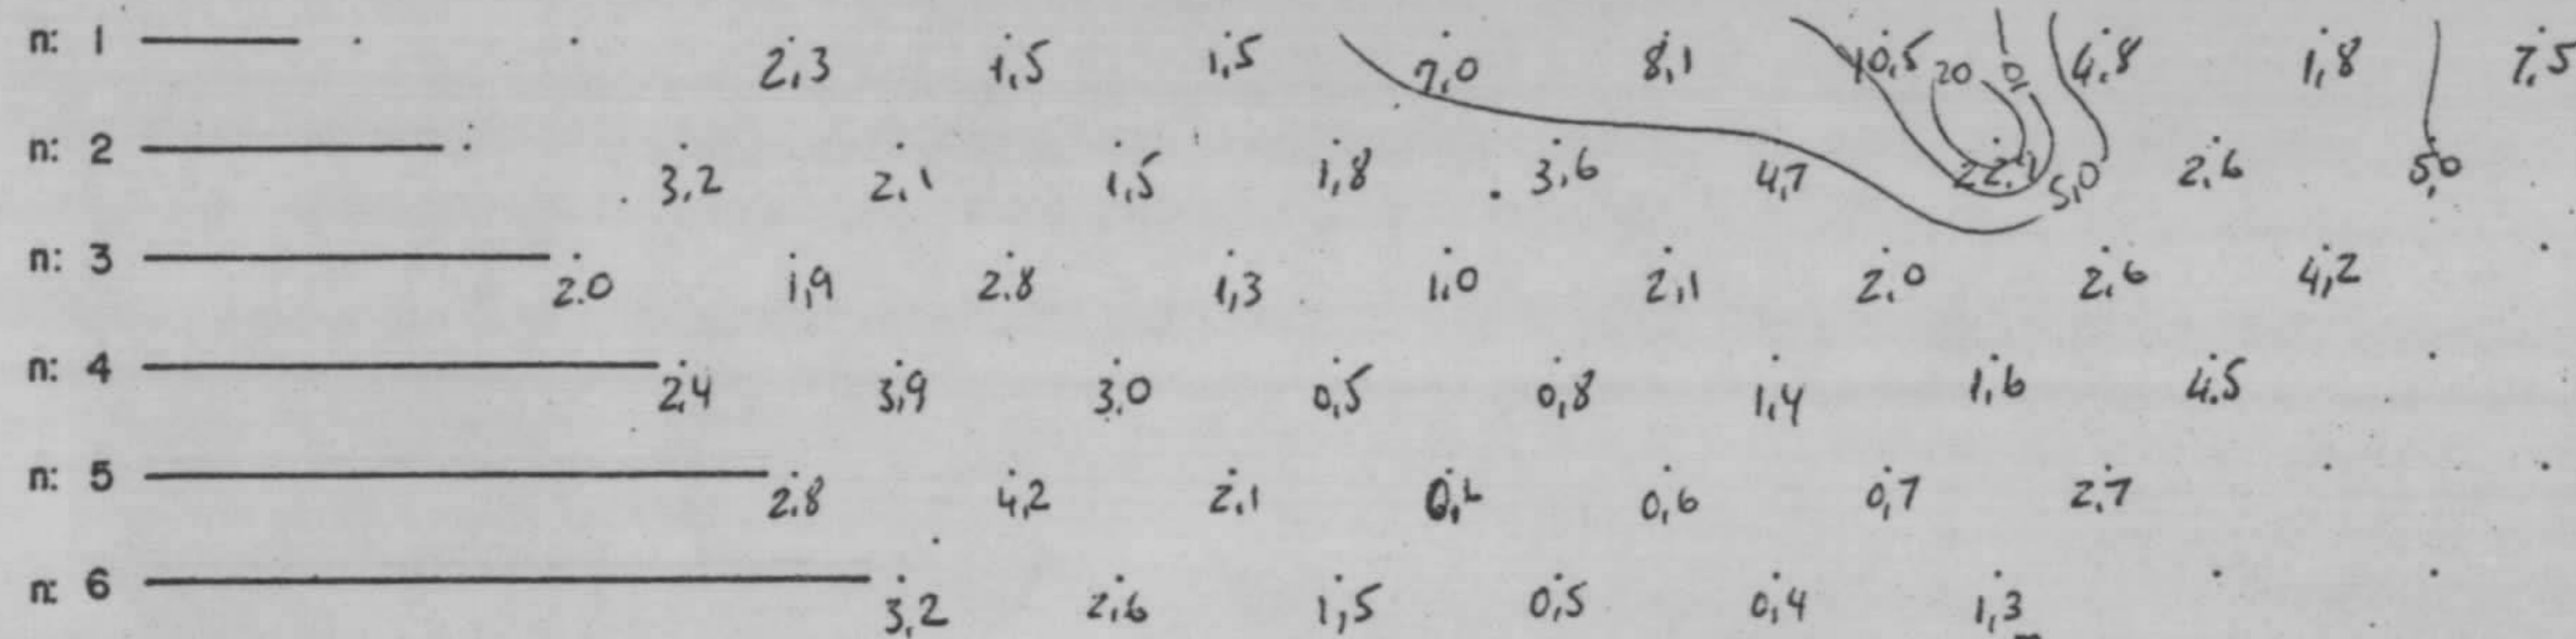 n: 1 2,3 1,5 1,5 7,0 8,1 10,5 20 10 4,8 1,8 7,5
n: 2 3,2 2,1 1,5 1,8 3,6 4,7 5,0 2,6 5,0
n: 3 2.0 1,9 2.8 1,3 1,0 2,1 2,0 2,6 4,2
n: 4 2,4 3,9 3,0 0,5 0,8 1,4 1,6 4.5
n: 5 2,8 4,2 2,1 0,6 0,7 2,7
n: 6 3,2 2,6 1,5 0,5 0,4 1,3